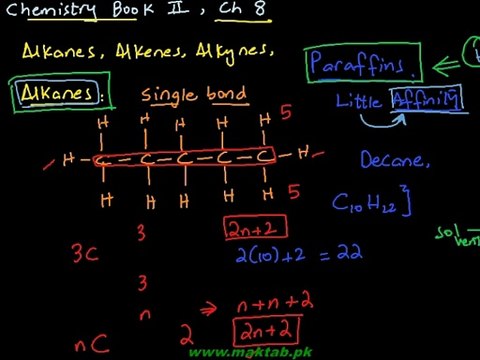 Chemistry Book II, Ch 8
Alkanes, Alkenes, Alkynes,
Paraffins.
Alkanes: Single bond
Little Affinity
H H H H H 5
H - C - C - C - C - C - H
H H H H H 5
Decane,
C10H22]
3C 3 2n+2
2(10)+2 = 22
sol
3
n ⇒ n+n+2
nC 2 2n+2
www.maktab.pk